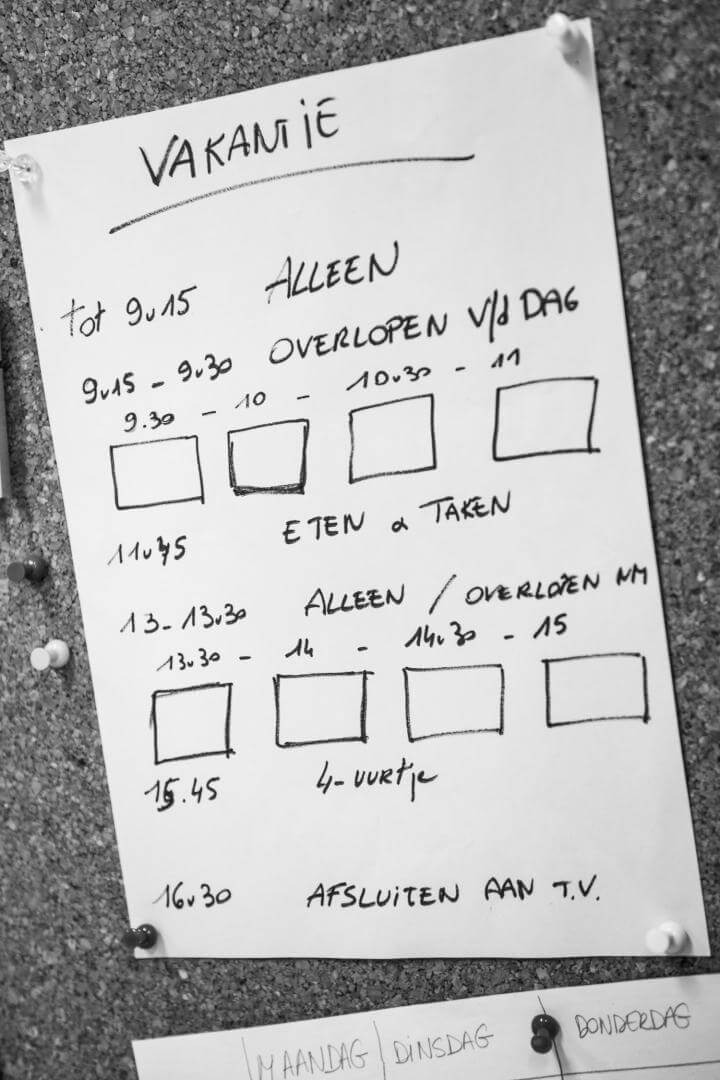 VAKANTIE
tot 9u15 ALLEEN
9u15 - 9u30 OVERLOPEN V/d DAG
9.30 - 10 - 10u30 - 11
11u45 ETEN & TAKEN
13-13u30 ALLEEN / OVERLOPEN NM
13u30 - 14 - 14u30 - 15
15.45 4-uurtje
16u30 AFSLUITEN AAN T.V.
MAANDAG DINSDAG DONDERDAG